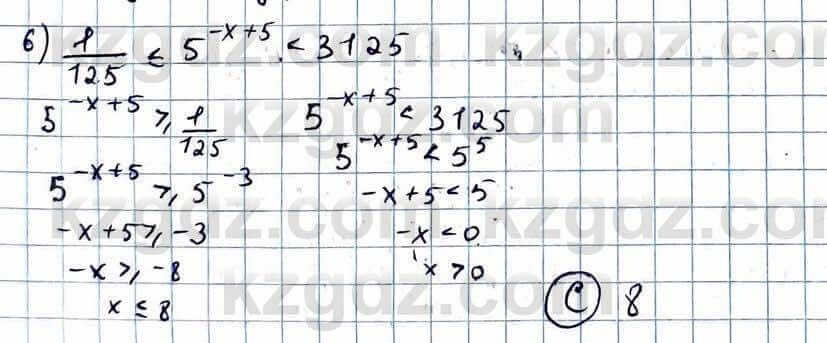 6) 1/125 ≤ 5^{-x+5} < 3125
5^{-x+5} ≥ 1/125
5^{-x+5} ≥ 5^{-3}
-x+5 ≥ -3
-x ≥ -8
x ≤ 8
5^{-x+5} < 3125
5^{-x+5} < 5^5
-x+5 < 5
-x < 0
x > 0
C 8
kzgdz.com
kzgdz.com
kzgdz.com
kzgdz.com
kzgdz.com
kzgdz.com